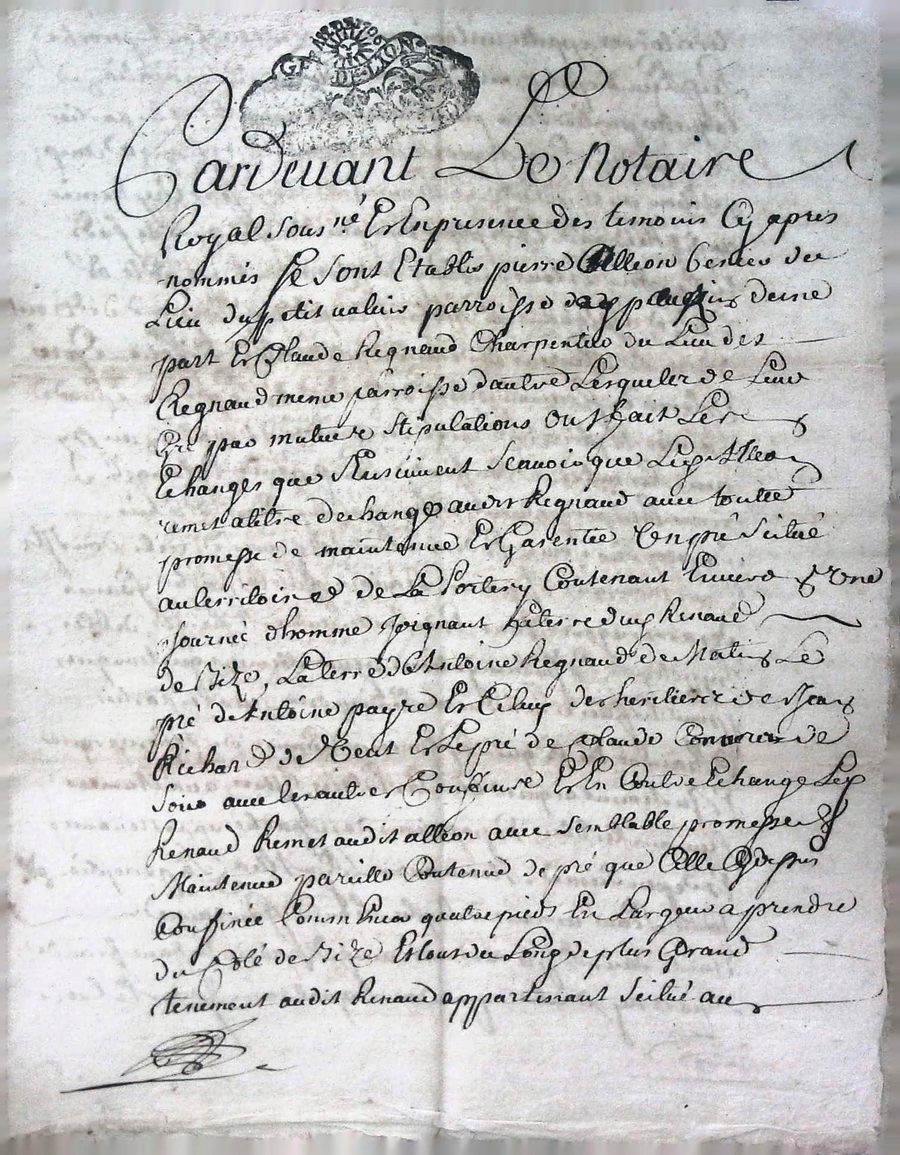 GEN DE LION
Pardevant Le Notaire
Royal Sous.né Et En presence des temoins Cy apres
nommés se sont Etablis pierre Alleon du
Lieu du petit parroisse d'une
part Et Claude Regnaud Charpentier du Lieu des
Regnaud meme parroisse d'autre Lesquels de Leur
gré par mutuele stipulations ont fait Les
Echanges que suivent scavoir que Led Alleon
remet a titre dechange audit Regnaud avec toutte
promesse de maintenue Et Garentie Un pré scitué
au territoire de La Contenant Enviro Une
Journée d'homme Joignant La terre dud Renaud
de bize, La terre d'Antoine Regnaud de Matin Le
pré d'Antoine payre Et Celuy des heritiers de Jean
Richard de Vent Et Le pré de Claude de
soir avec Les autres Confins Et En Contre Echange Led
Renaud Remet audit alleon avec semblable promesse de
Maintenue pareille Contenue de pré que Celle Cy dessus
Confinée Comm quatre pieds En Largeur a prendre
du Coté de bize Et tout du Long de plus Grand
tenement audit Renaud appartenant scitué au